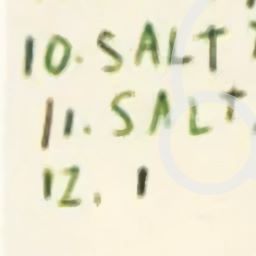 10. SALT
11. SALT
12. 1